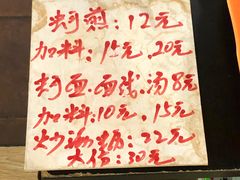 蚵煎：12元
加料：15元、20元
蚵面.面线.汤8元
加料：10元、15元
炒 22元
大份：30元